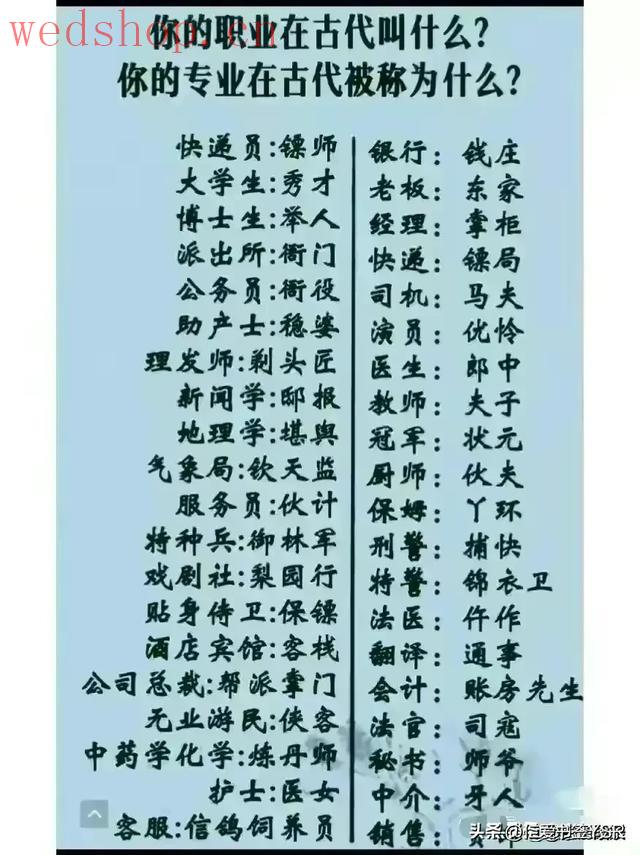 wedshop.cn
你的职业在古代叫什么？
你的专业在古代被称为什么？
快递员:镖师
大学生:秀才
博士生:举人
派出所:衙门
公务员:衙役
助产士:稳婆
理发师:剃头匠
新闻学:邸报
地理学:堪舆
气象局:钦天监
服务员:伙计
特种兵:御林军
戏剧社:梨园行
贴身侍卫:保镖
酒店宾馆:客栈
公司总裁:帮派掌门
无业游民:侠客
中药学化学:炼丹师
护士:医女
客服:信鸽饲养员
银行：钱庄
老板：东家
经理：掌柜
快递：镖局
司机：马夫
演员：优怜
医生：郎中
教师：夫子
冠军：状元
厨师：伙夫
保姆：丫环
刑警：捕快
特警：锦衣卫
法医：仵作
翻译：通事
会计：账房先生
法官：司寇
秘书：师爷
中介：牙人
销售：
头条